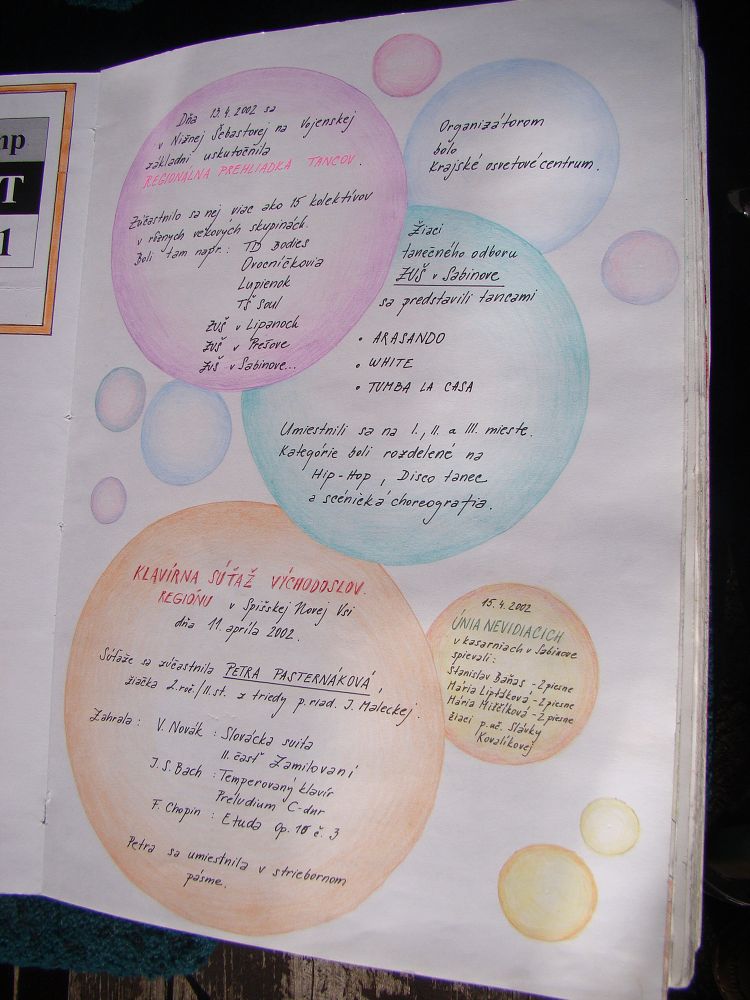 mp
T
1
Dňa 13.4.2002 sa
v Nižnej Šebastovej na Vojenskej
základni uskutočnila
REGIONÁLNA PREHLIADKA TANCOV.
Zúčastnilo sa nej viac ako 15 kolektívov
v rôznych vekových skupinách.
Boli tam napr.: TD Bodies
Ovocníčkovia
Lupienok
TŠ Soul
ZUŠ v Lipanoch
ZUŠ v Prešove
ZUŠ v Sabinove...
Organizátorom
bolo
Krajské osvetové centrum.
Žiaci
tanečného odboru
ZUŠ v Sabinove
sa predstavili tancami
• ARASANDO
• WHITE
• TUMBA LA CASA
Umiestnili sa na I., II. a III. mieste.
Kategórie boli rozdelené na
Hip-Hop, Disco tanec
a scénická choreografia.
KLAVÍRNA SÚŤAŽ VÝCHODOSLOV.
REGIÓNU v Spišskej Novej Vsi
dňa 11. apríla 2002.
Súťaže sa zúčastnila PETRA PASTERNÁKOVÁ,
žiačka 2.roč./II.st. z triedy p. riad. J. Maleckej.
Zahrala: V. Novák: Slovácka suita
II. časť Zamilovaní
J. S. Bach: Temperovaný klavír
Prelúdium C-dur
F. Chopin: Etuda Op. 10 č. 3
Petra sa umiestnila v striebornom
pásme.
15.4.2002
ÚNIA NEVIDIACICH
v kasarniach v Sabinove
spievali:
Stanislav Baňas - 2 piesne
Mária Liptáková - 2 piesne
Mária - 2 piesne
žiaci p. uč. Slávky
Kovalíkovej